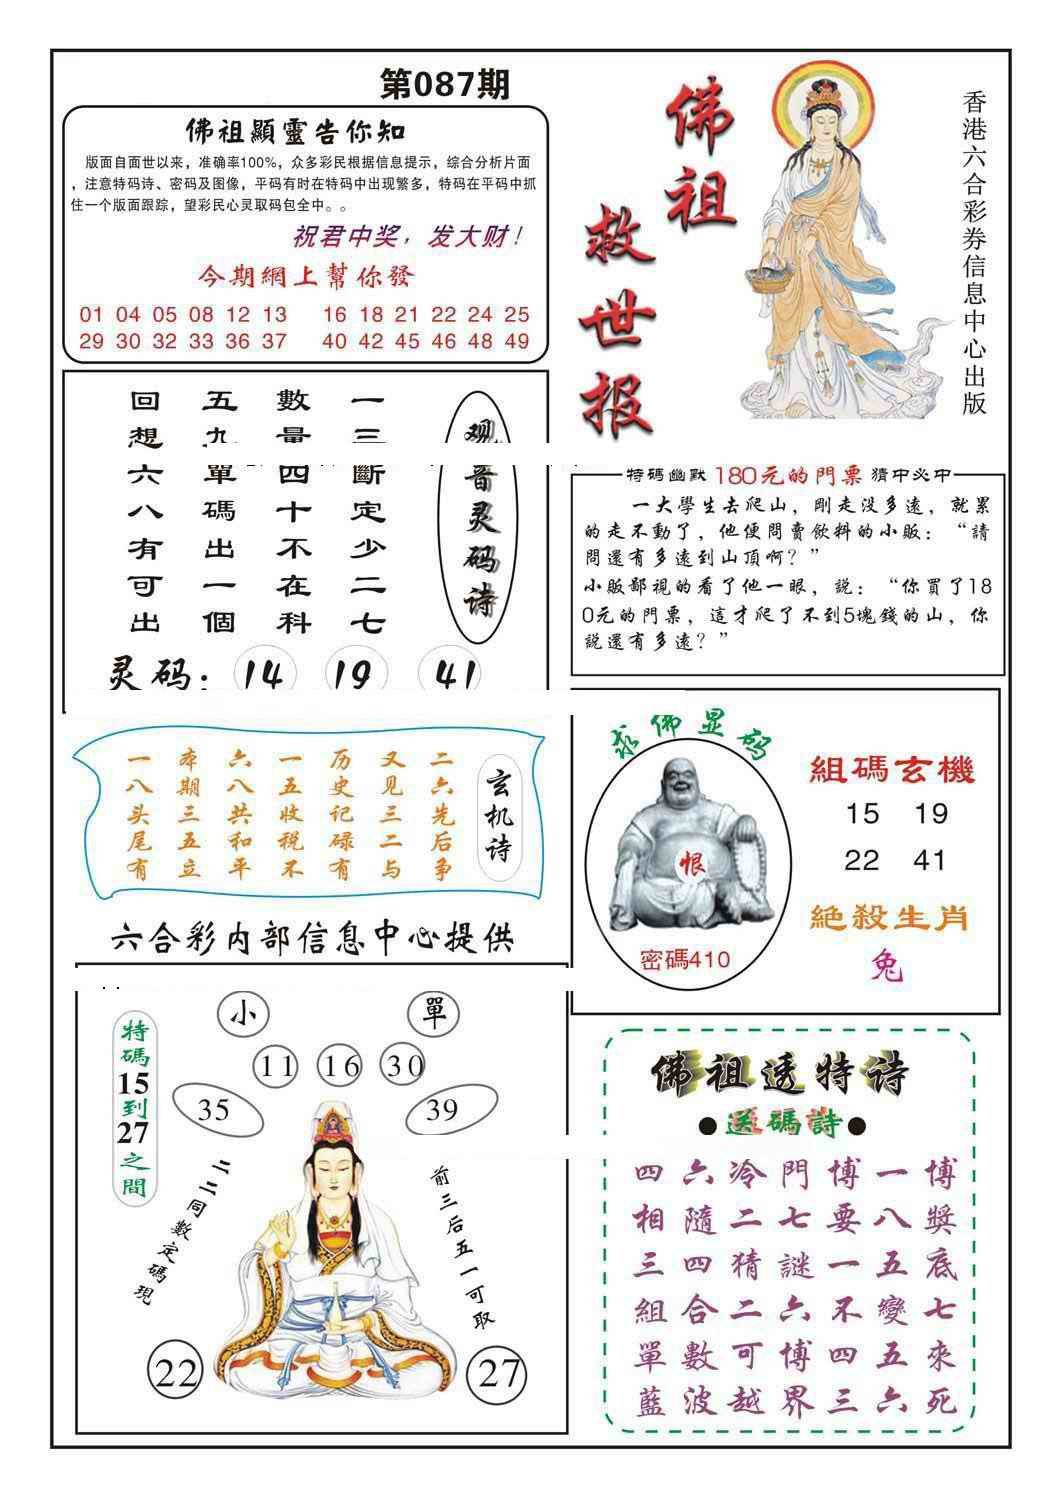 第087期
佛祖顯靈告你知
版面自面世以来，准确率100%，众多彩民根据信息提示，综合分析片面
，注意特码诗、密码及图像，平码有时在特码中出现繁多，特码在平码中抓
住一个版面跟踪，望彩民心灵取码包全中。。
祝君中奖，发大财！
今期網上幫你發
01 04 05 08 12 13 16 18 21 22 24 25
29 30 32 33 36 37 40 42 45 46 48 49
佛祖
救世报
香港六合彩券信息中心出版
观音灵码诗
一三斷定少二七
數量四十不在科
五九單碼出一個
回想六八有可出
灵码：14 19 41
特碼幽默 180元的門票 猜中必中
一大學生去爬山，剛走没多遠，就累
的走不動了，他便問賣飲料的小販：“請
問還有多遠到山頂啊？”
小販鄙視的看了他一眼，説：“你買了18
0元的門票，這才爬了不到5塊錢的山，你
説還有多遠？”
玄机诗
二六先后争
又见三二与
历史记碌有
一五收税不
六八共和平
本期三五立
一八头尾有
六合彩内部信息中心提供
求佛显码
恨
密碼410
組碼玄機
15 19
22 41
絕殺生肖
兔
小 單
11 16 30
35 39
特碼15到27之間
二二同數定碼現
前三后五一可取
22 27
佛祖透特诗
●送碼詩●
四六冷門博一博
相隨二七要八獎
三四猜謎一五底
組合二六不變七
單數可博四五來
藍波越界三六死